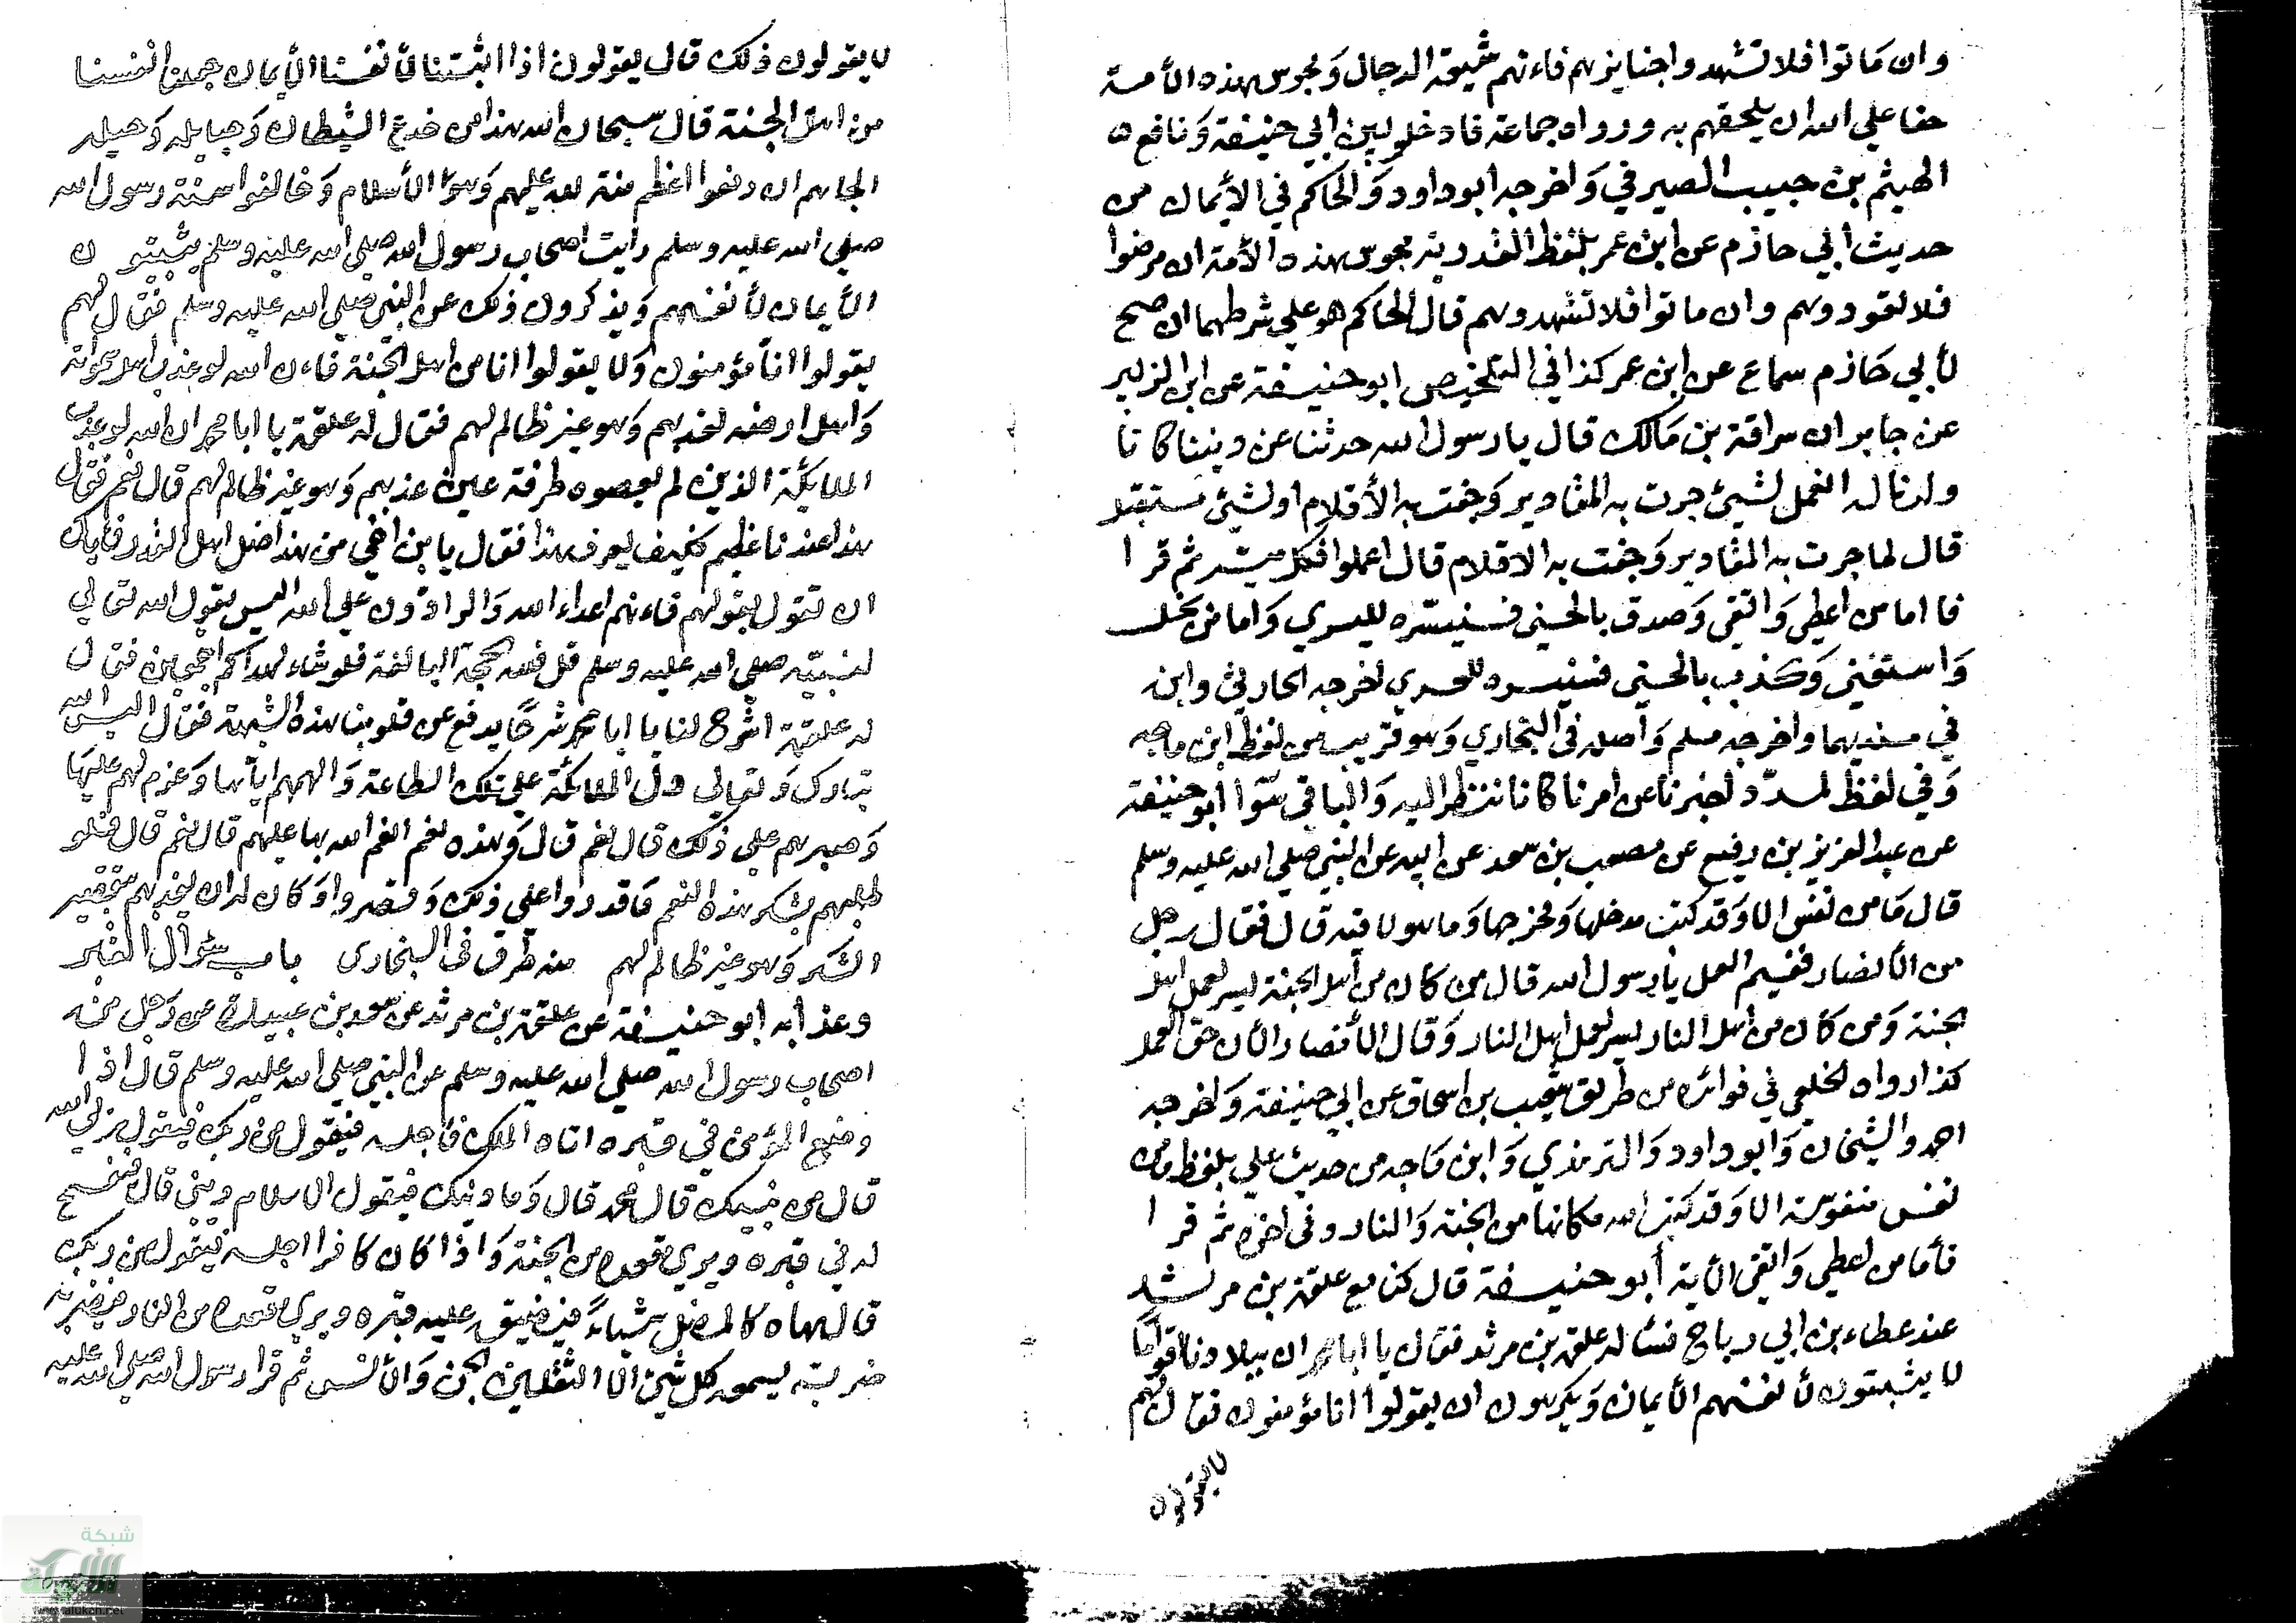 وان ماتوا فلا تشهدوا جنايزهم فاءنهم شيعة الدجال ومجوس هذه الأمة
حقا علي الله ان يلحقهم به ورواه جماعة فادخلو بين ابي حنيفة ونافع
الهيثم بن حبيب الصيرفي واخرجه ابو داود والحاكم في الأيمان من
حديث ابي حازم عن ابن عمر بلفظ القدرية مجوس هذه الأمة ان مرضوا
فلا تعودوهم وان ماتوا فلا تشهدوهم قال الحاكم هو علي شرطهما ان صح
لأبي حازم سماع عن ابن عمر كذا في التلخيص ابو حنيفة عن ابي الزبير
عن جابر ان سراقة بن مالك قال يا رسول الله حدثنا عن ديننا كانا
ولدنا له العمل لشيئ جرت به المقادير وجفت به الأقلام او لشيئ مستقبل
قال لما جرت به المقادير وجفت به الاقلام قال اعملوا فكل ميسر ثم قرا
فاما من اعطي واتقي وصدق بالحسني فسنيسره لليسري واما من بخل
واستغني وكذب بالحسني فسنيسره للعسري اخرجه الحارثي وابن
في مسنديهما واخرجه مسلم واصله في البخاري وهو قريب من لفظ ابن ماجه
وفي لفظ لمسدد اخبرنا عن امرنا كانا ننتظر اليه والباقي سوا أبو حنيفة
عن عبد العزيز بن رفيع عن مصعب بن سعد عن ابيه عن النبي صلي الله عليه وسلم
قال ما من نفس الا وقد كتب مدخلها ومخرجها وما هو لاقيه قال فقال رجل
من الأنصار ففيم العمل يا رسول الله قال من كان من أهل الجنة يسر لعمل اهل
الجنة ومن كان من اهل النار يسر لعمل اهل النار وقال الأنصار الأن حق العمل
كذا رواه الخلعي في فوائده من طريق شعيب بن اسحاق عن ابي حنيفة واخرجه
احمد والشيخان وابو داود والترمذي وابن ماجه من حديث علي بلفظ ما من
نفس منفوسة الا وقد كتب الله مكانها من الجنة والنار وفي اخره ثم قرا
فأما من اعطي واتقي الأية أبو حنيفة قال كنا مع علقمة بن مرثد
عند عطاء بن ابي رباح فسئاله علقمة بن مرثد فقال يا ابا محمد ان ببلادنا قوما
لا يثبتون لأنفسهم الأيمان ويكرهون ان يقولوا انا مؤمنون فقال لهم
لا يقولون ذلك قال يقولون اذا اثبتنا لأنفسنا الأيمان جعلنا انفسنا
من اهل الجنة قال سبحان الله هذا من خدع الشيطان وحبايله وحيله
الجاهم ان دفعوا اعظم منة لله عليهم وهو الأسلام وخالفوا سنة رسول الله
صلي الله عليه وسلم رايت اصحاب رسول الله صلي الله عليه وسلم يثبتون
الأيمان لأنفسهم ويذكرون ذلك عن النبي صلي الله عليه وسلم فقال لهم
يقولوا انا مؤمنون ولا يقولوا انا من اهل الجنة فاءن الله لو عذب اهل سمواته
واهل ارضه لعذبهم وهو غير ظالم لهم فقال له علقمة يا ابا محمد ان الله لو عذب
الملائكة الذين لم يعصوه طرفة عين عذبهم وهو غير ظالم لهم قال نعم فقال
هذا عندنا عظيم فكيف يعرف هذا فقال يا بن اخي من هذا ضل اهل القدر فأياك
ان تقول بقولهم فاءنهم اعداء الله والرادون علي الله اليس يقول الله تعالي
لنبيه صلي الله عليه وسلم قل فلله الحجة البالغة فلو شاء لهداكم اجمعين فقال
له علقمة اشرح لنا يا ابا محمد شرحا يدفع عن قلوبنا هذه الشبهة فقال اليس الله
تبارك وتعالي دل الملائكة علي تلك الطاعة والهمهم اياها وعزم لهم عليها
وصبرهم علي ذلك قال نعم قال وهذه نعم انعم الله بها عليهم قال نعم قال فلو
طلبهم بشكر هذه النعم ما قدروا علي ذلك وقصروا وكان له ان يعذبهم بتقصير
الشكر وهو غير ظالم لهم منه طرق في البخاري باب سؤال القبر
وعذابه ابو حنيفة عن علقمة بن مرثد عن سعد بن عبيدة عن رجل من
اصحاب رسول الله صلي الله عليه وسلم عن النبي صلي الله عليه وسلم قال اذا
وضع المؤمن في قبره اتاه الملك فاجلسه فيقول من ربك فيقول ربي الله
قال من نبيك قال محمد قال وما دينك فيقول الاسلام ديني قال فيفسح
له في قبره ويري مقعده من الجنة واذا كان كافرا اجلسه فيقول من ربك
قال هاه كالمضل شياءً فيضيق عليه قبره ويري مقعده من النار فيضربه
ضربة يسمعه كل شيئ الا الثقلين الجن والأنس ثم قرا رسول الله صلي الله عليه
شبكة
الألوكة
www.alukah.net